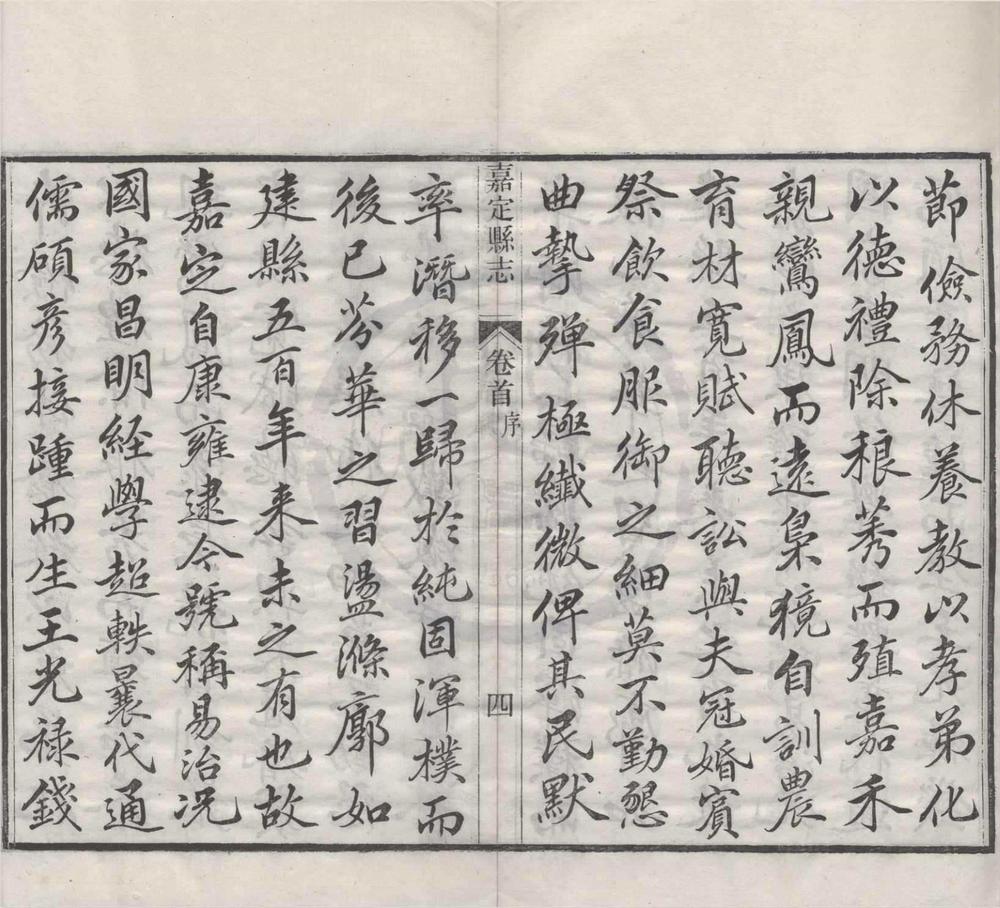 節儉務休養教以孝弟化
以德禮除稂莠而殖嘉禾
親鸞鳳而遠梟獍自訓農
育材寬賦聽訟與夫冠婚賓
祭飲食服御之細莫不勤懇
曲摯殫極纖微俾其民默
嘉定縣志 卷首 序 四
率潛移一歸於純固渾樸而
後已芬華之習盪滌廓如
建縣五百年来未之有也故
嘉定自康雍逮今號稱易治况
國家昌明経學超軼曩代通
儒碩彥接踵而生王光禄錢